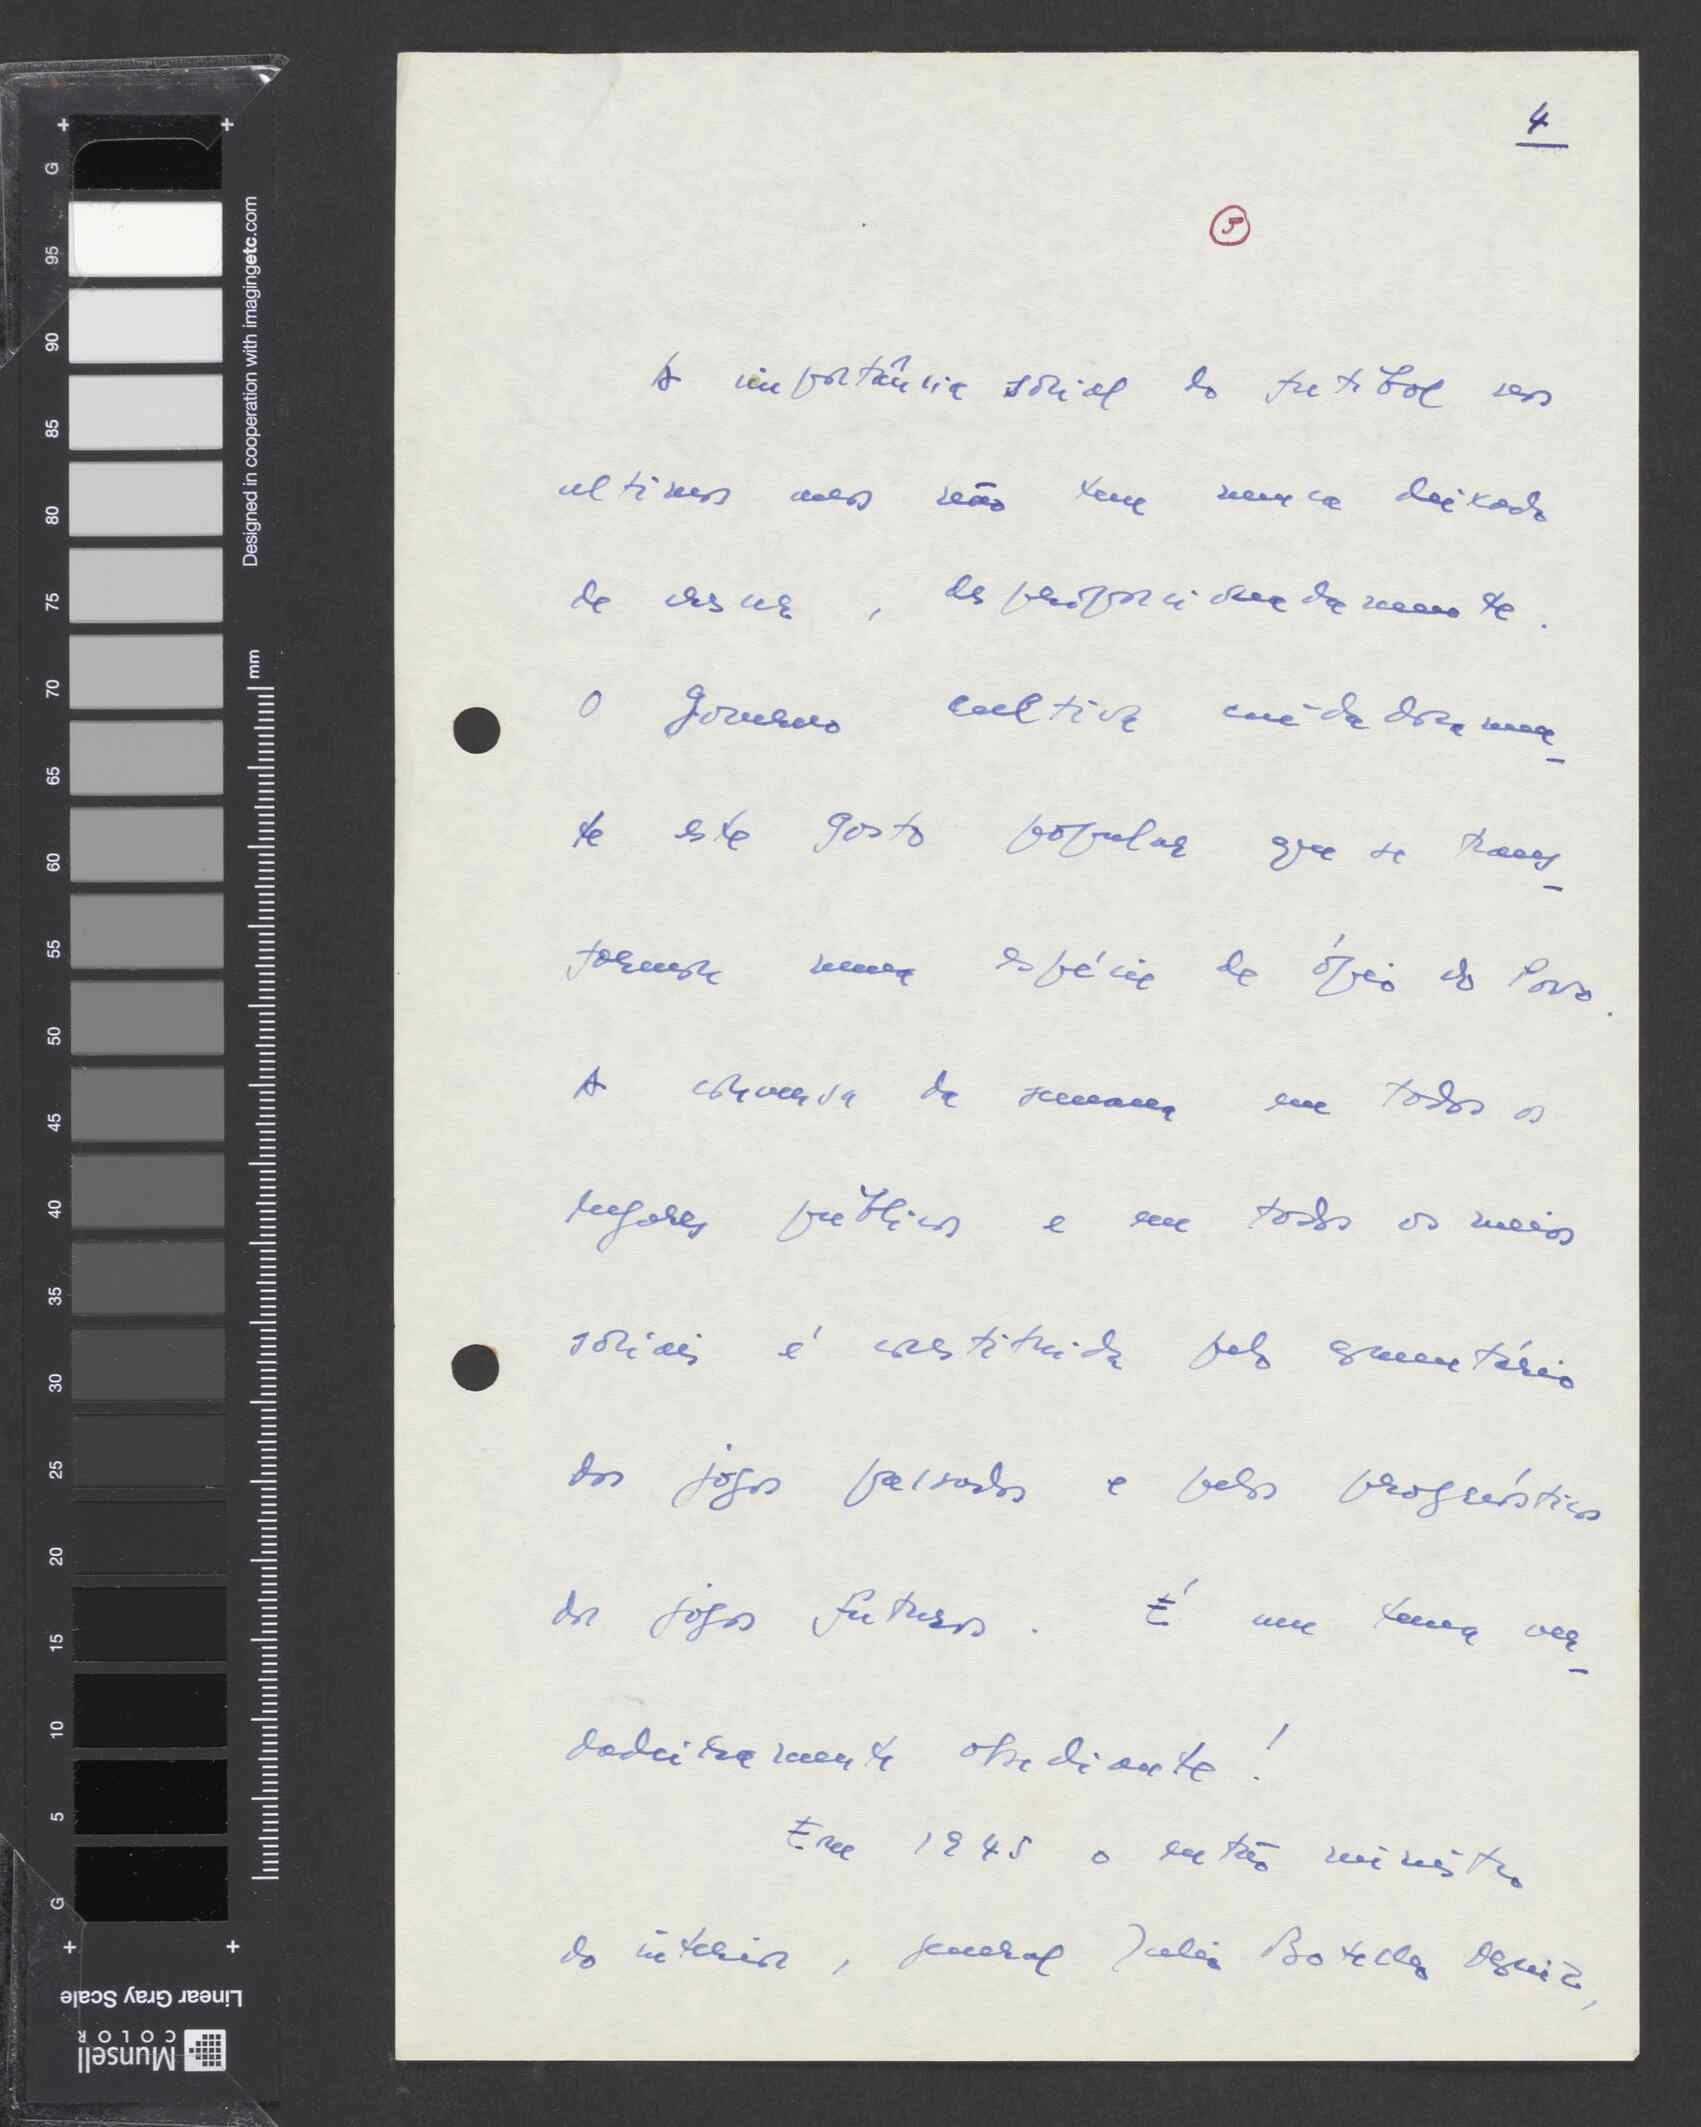 4
5
A importância social do futibol nos
ultimos anos não tem nunca deixado
de crescer, desproporcionadamente.
O Governo cultiva cuidadosamen-
te este gosto popular que se trans-
formou numa espécie de ópio do Povo.
A conversa da semana em todos os
lugares públicos e em todos os meios
sociais é constituida pelo comentário
dos jogos passados e pelos prognósticos
dos jogos futuros. É um tema ver-
dadeiramente obsediante!
Em 1945 o então ministro
do interior, general Julio Botelho Moniz,
G
95
90
85
80
75
70
65
60
55
50
45
40
35
30
25
20
15
10
5
G
Designed in cooperation with imagingetc.com
mm
Linear Gray Scale
Munsell
COLOR